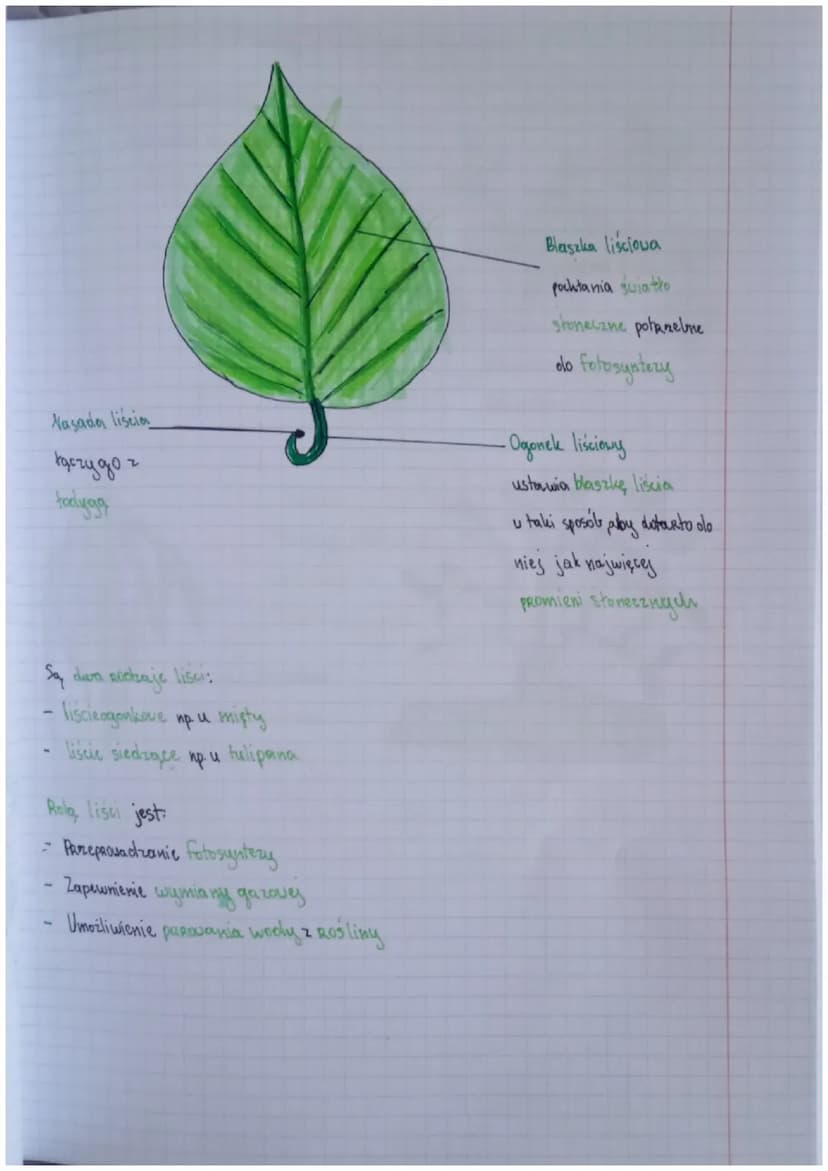 Blaszka liściowa
pochłania światło
słoneczne potrzebne
do fotosyntezy
Nasada liścia
łączy go z
łodygą
Ogonek liściowy
ustawia blaszkę liścia
w taki sposób, aby dotarło do
niej jak najwięcej
promieni słonecznych
Są dwa rodzaje liści:
- liścieogonkowe np. u mięty
- liście siedzące np. u tulipana
Rolą liści jest:
- Przeprowadzanie fotosyntezy
- Zapewnienie wymiany gazowej
- Umożliwienie parowania wody z rośliny